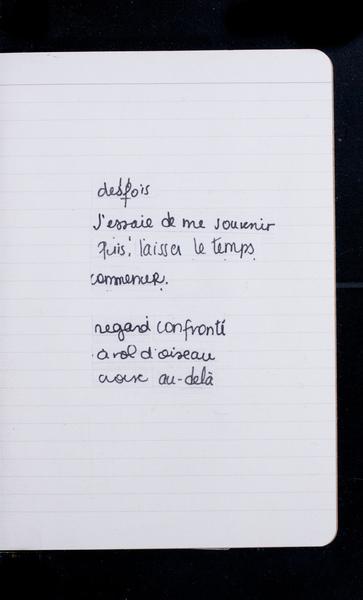 desfois
J'essaie de me souvenir
puis, laisser le temps
commencer.
regard confronté
à vol d'oiseau
croise au-delà